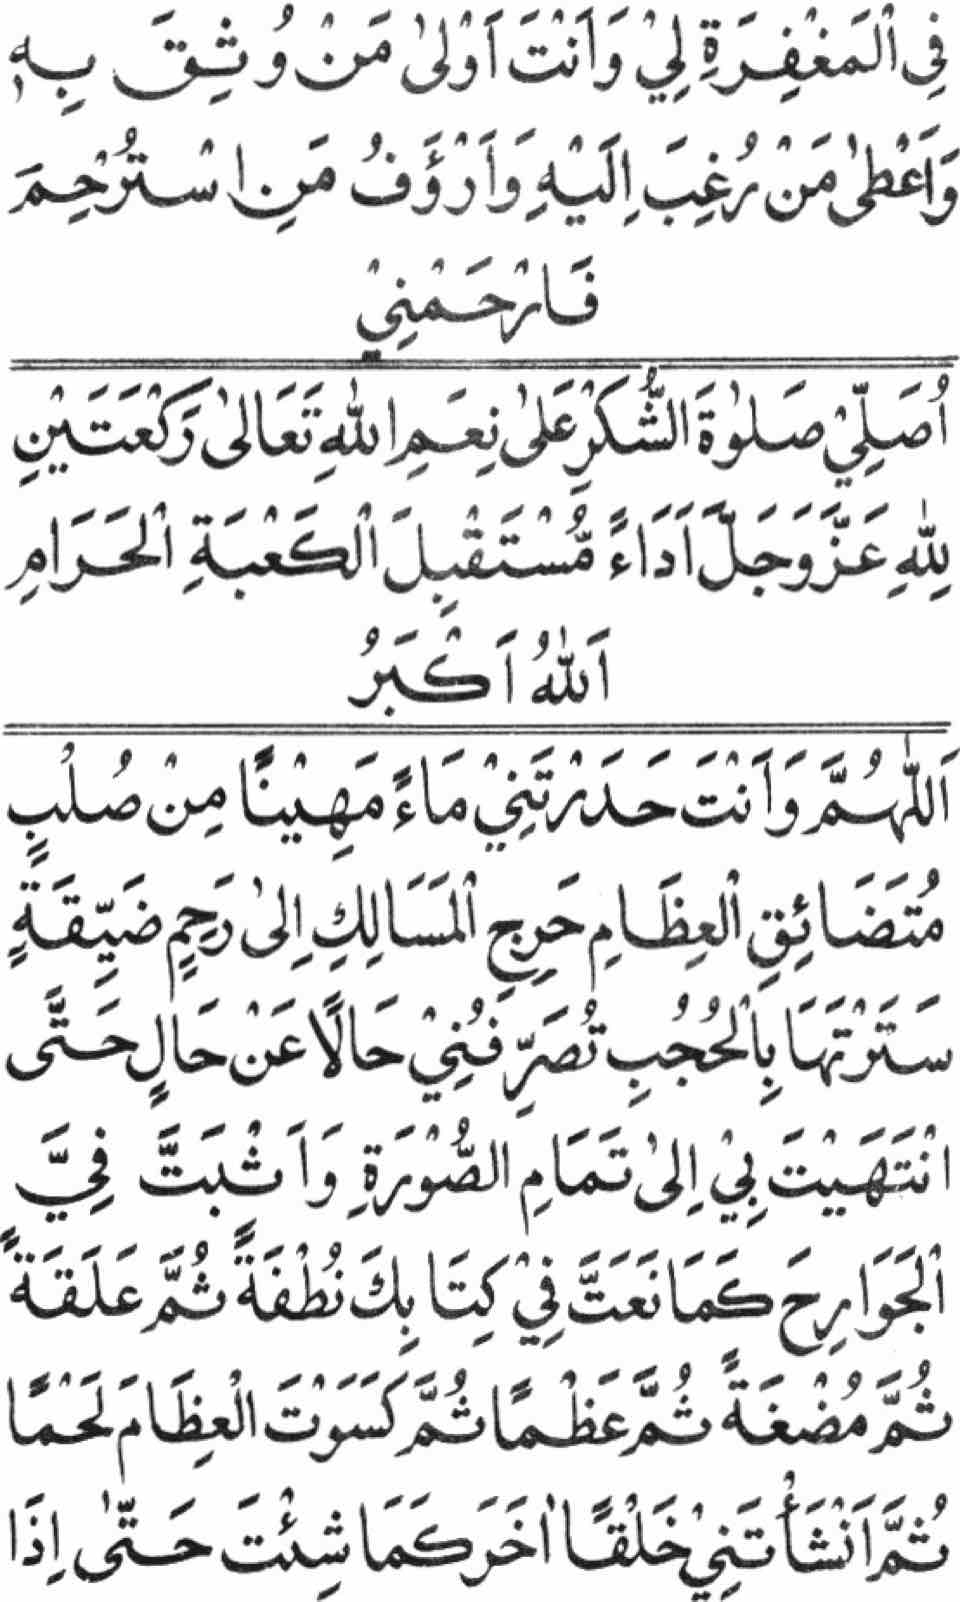 فِي الْمَغْفِرَةِ لِيْ وَاَنْتَ اَوْلىٰ مَنْ وُثِقَ بِهٖ
وَاَعْطىٰ مَنْ رُغِبَ اِلَيْهِ وَاَرْؤَفُ مَنِ اسْتُرْحِمَ
فَارْحَمْنِيْ
اُصَلِّيْ صَلوٰةَ الشُّكَرْ عَلىٰ نِعَمِ اللهِ تَعَالىٰ رَكْعَتَيْنِ
لِلّٰهِ عَزَّ وَجَلَّ اَدَاءً مُّسْتَقْبِلَ الْكَعْبَةِ الْحَرَامِ
اَللهُ اَكْبَرُ
اَللّٰهُمَّ وَاَنْتَ حَدَرْتَنِيْ مَاءً مَهِيْنًا مِنْ صُلْبٍ
مُتَضَائِقِ الْعِظَامِ حَرِجِ الْمَسَالِكِ اِلىٰ رَحِمٍ ضَيِّقَةٍ
سَتَرْتَهَا بِالْحُجُبِ تُصَرِّفُنِيْ حَالًا عَنْ حَالٍ حَتّٰى
انْتَهَيْتَ بِيْ اِلىٰ تَمَامِ الصُّوْرَةِ وَاَثْبَتَّ فِيَّ
الْجَوَارِحَ كَمَا نَعَتَّ فِيْ كِتَابِكَ نُطْفَةً ثُمَّ عَلَقَةً
ثُمَّ مُضْغَةً ثُمَّ عَظْمًا ثُمَّ كَسَوْتَ الْعِظَامَ لَحْمًا
ثُمَّ اَنْشَأْتَنِيْ خَلْقًا اٰخَرَ كَمَا شِئْتَ حَتّٰى اِذَا